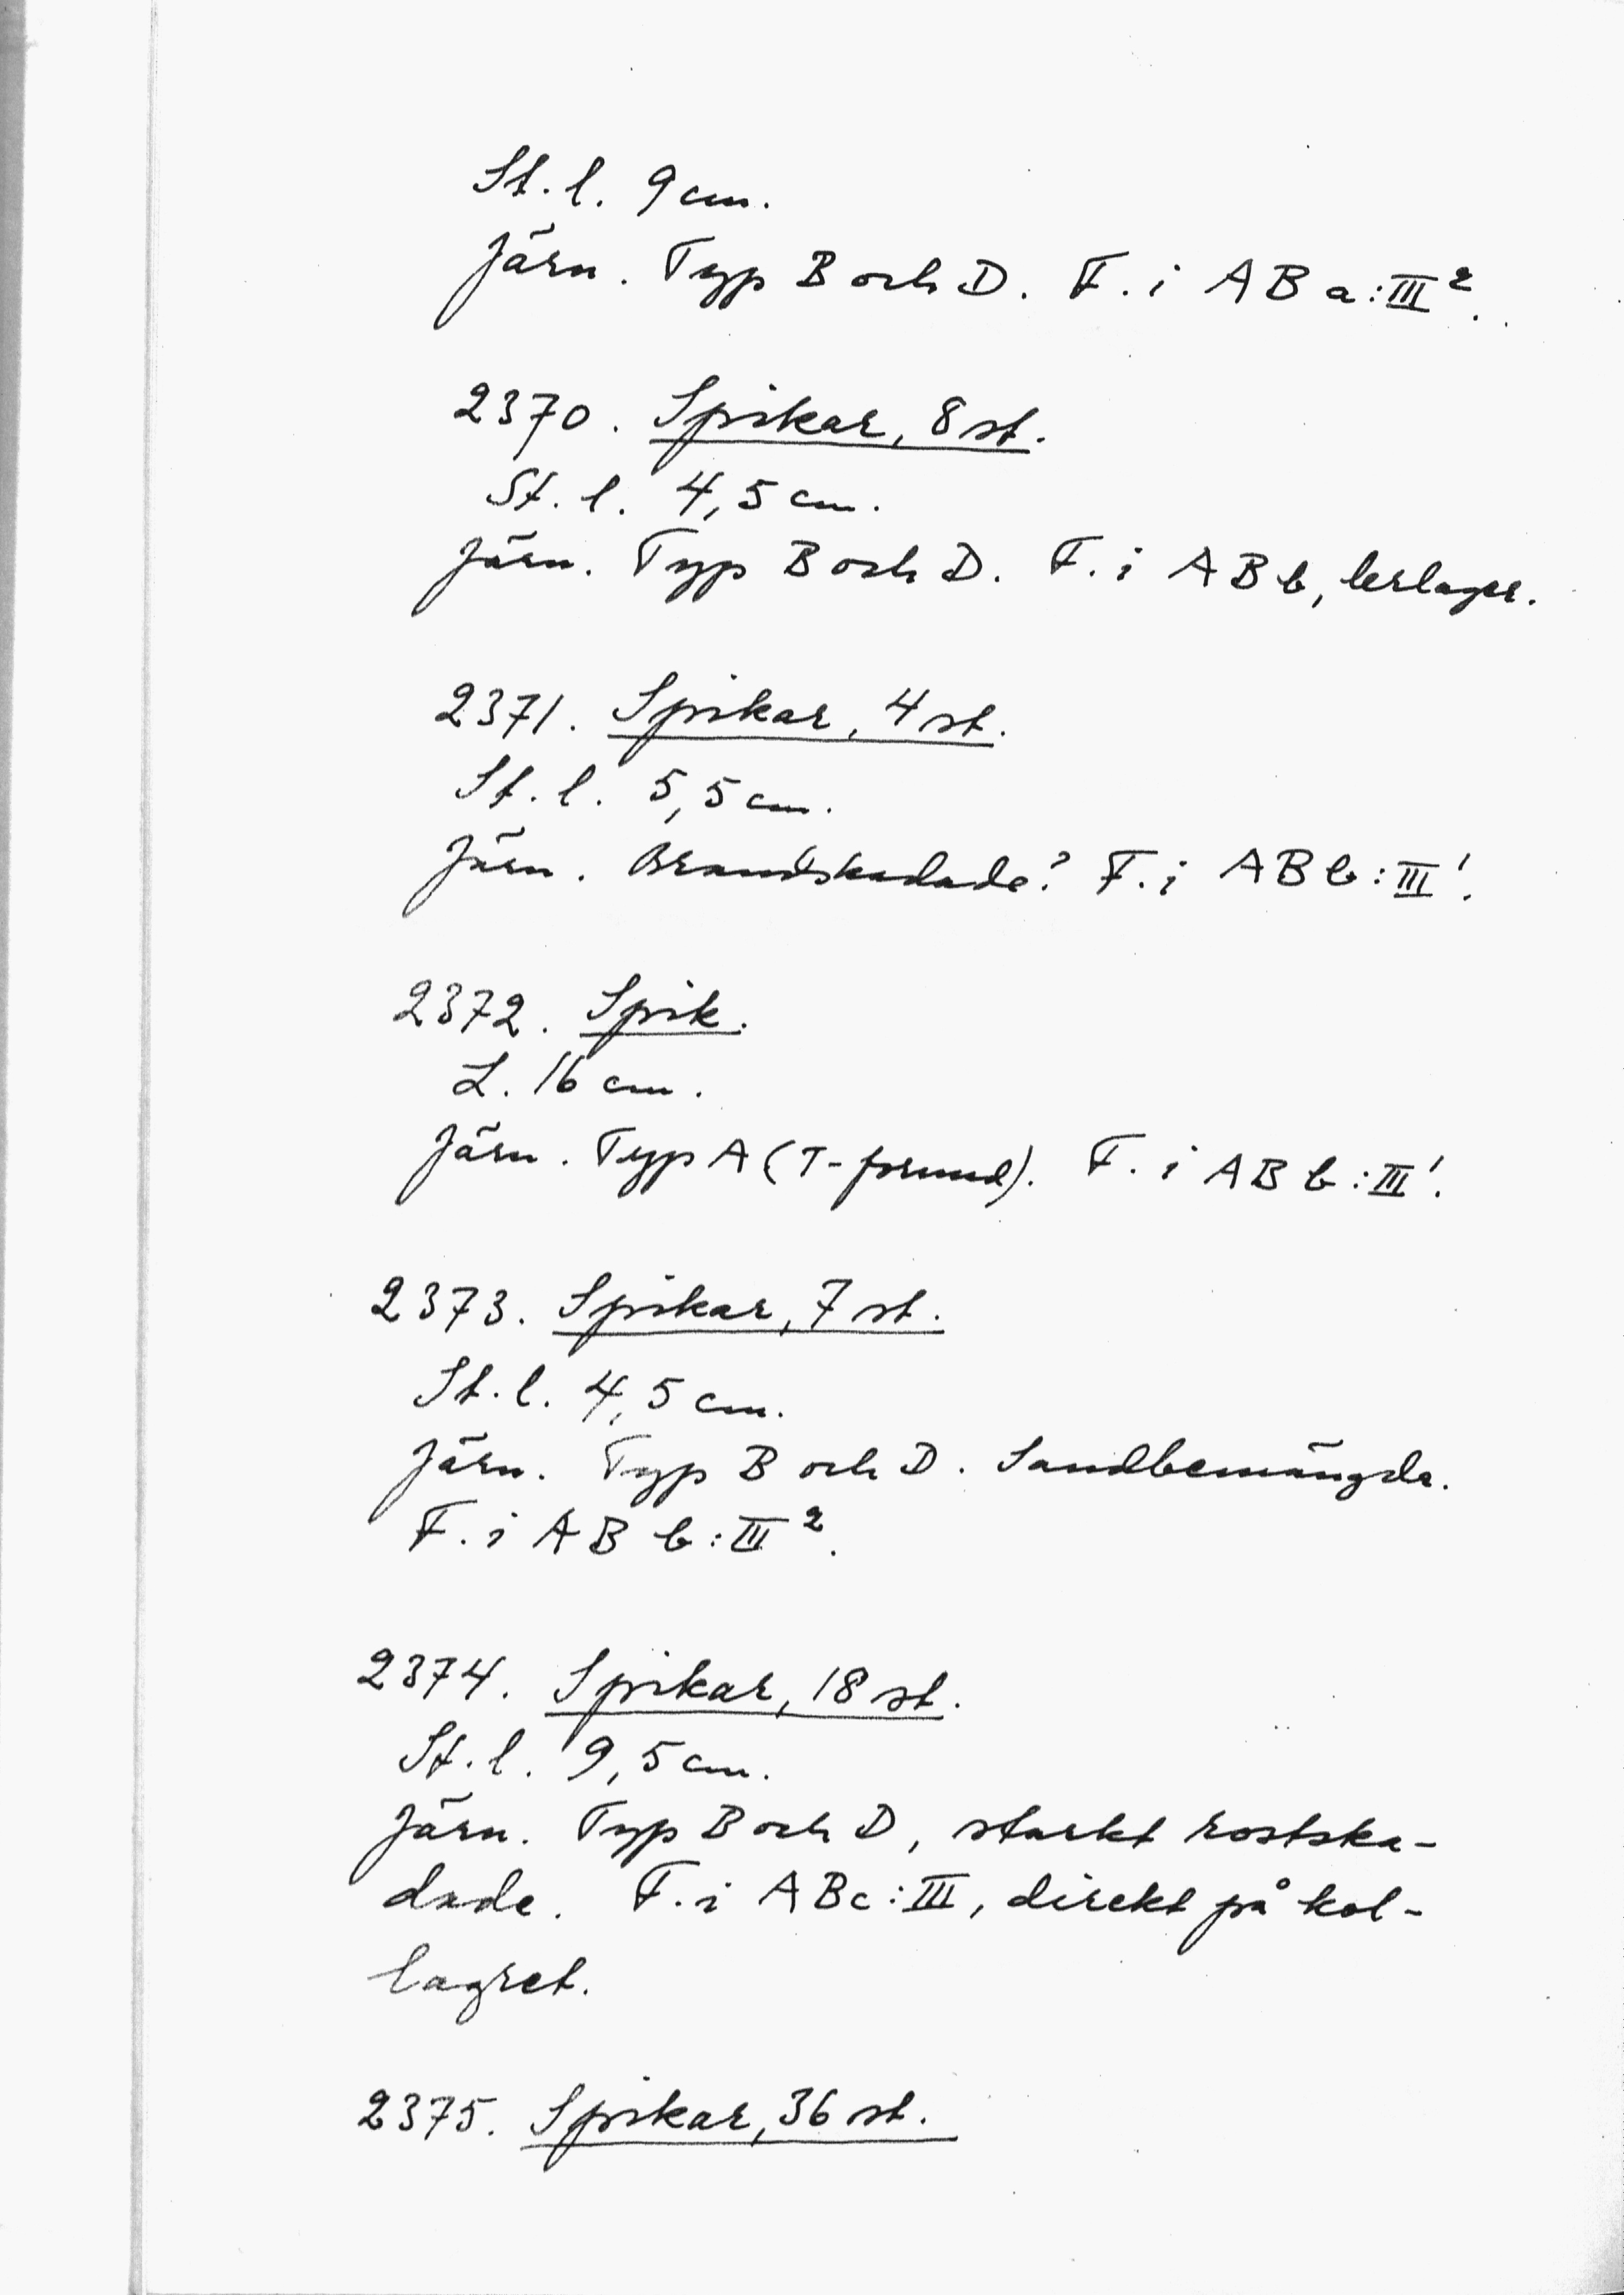 St. l. 9 cm.
Järn. Typ B och D. F. i AB a:III².
2370. Spikar, 8 st.
St. l. 4,5 cm.
Järn. Typ B och D. F. i AB b, lerlager.
2371. Spikar, 4 st.
St. l. 5,5 cm.
Järn. Brandskadade? F. i AB b:III¹.
2372. Spik.
L. 16 cm.
Järn. Typ A (T-formad). F. i AB b:III¹.
2373. Spikar, 7 st.
St. l. 4,5 cm.
Järn. Typ B och D. Sandbemängda.
F. i AB b:III².
2374. Spikar, 18 st.
St. l. 9,5 cm.
Järn. Typ B och D, starkt rostska-
dade. F. i ABc:III, direkt på kol-
lagret.
2375. Spikar, 36 st.